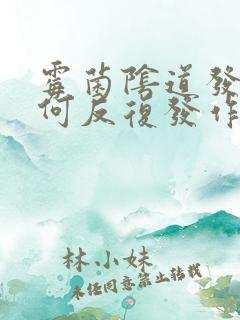 霉菌陰道發
何反復發作
林小妹
未经同意禁止转载